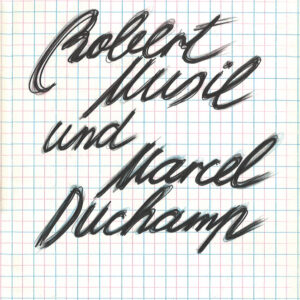 Robert
Musil
und
Marcel
Duchamp